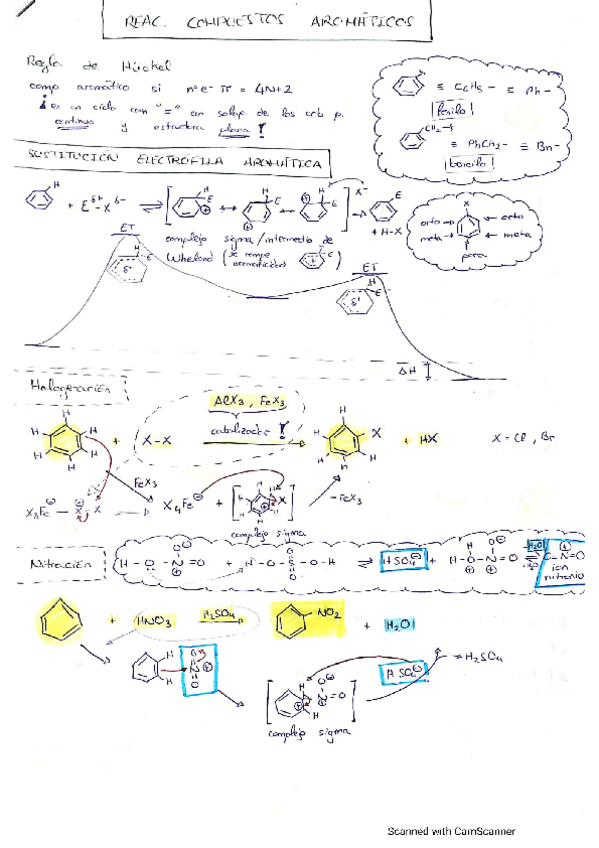 REAC. COMPUESTOS AROMÁTICOS
Regla de Hückel
comp aromático si nº e- π = 4N+2
¡ es un ciclo con "=" con solap. de los orb p.
continuo y estructura plana !
≡ C6H5- ≡ Ph-
fenilo
CH2-
≡ PhCH2- ≡ Bn-
bencilo
SUSTITUCIÓN ELECTRÓFILA AROMÁTICA
H
+ E δ+ - X δ- ⇌ [ H E ⊕ ↔ H E ⊕ ↔ H E ⊕ ] X⊖ → E
+ H-X
complejo sigma / intermedio de
Wheland (se rompe
aromaticidad)
X
orto orto
meta meta
para
ET
H E
δ+
ET
H
E
δ+
ΔH
Halogenación
AlX3, FeX3
catalizador !
H H H H H H + X-X → H X H H H H + HX X = Cl, Br
FeX3
X3Fe⊖ - X⊕ - X → X4Fe⊖ + [ H X ⊕ ] -FeX3
complejo sigma
Nitración
H-O-N=O + H-O-S-O-H ⇌ HSO4⊖ + H-O-N=O H2O O=N=O
ion
nitronio
+ HNO3 H2SO4 → NO2 + H2O
H H O N⊕ O
HSO4⊖ → H2SO4
[ H H N=O ]
complejo sigma
Scanned with CamScanner